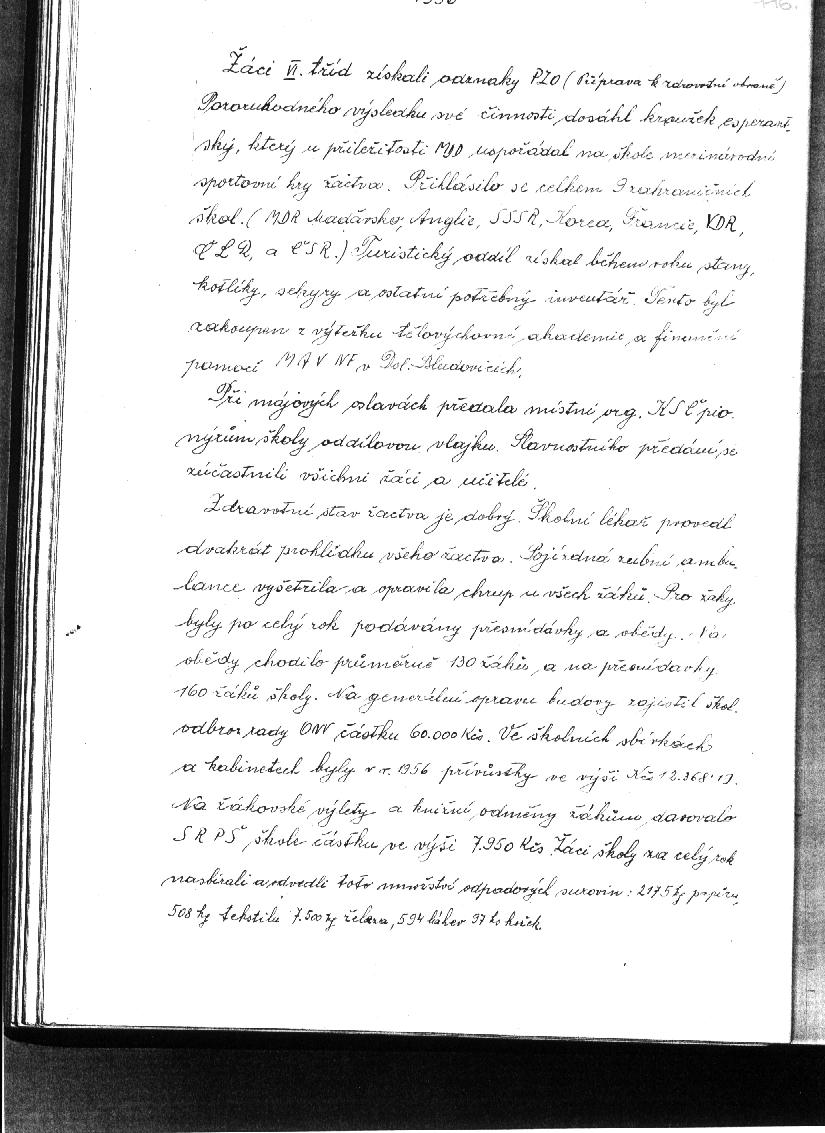 1956
116.
Žáci VI. tříd získali odznaky PZO (Příprava k zdravotní obraně)
Pozoruhodného výsledku své činnosti dosáhl kroužek esperant-
ský, který u příležitosti MDD uspořádal na škole mezinárodní
sportovní hry žactva. Přihlásilo se celkem 9 zahraničních
škol. (MDR Maďarsko, Anglie, SSSR, Korea, Francie, VDR,
ČLR, a ČSR.) Turistický oddíl získal během roku stany,
kotlíky, sekyry a ostatní potřebný inventář. Tento byl
zakoupen z výtěžku tělovýchovné akademie a finanční
pomocí MAV NF v Dol. Bludovicích.
Při májových oslavách předala místní org. KSČ pio-
nýrům školy oddílovou vlajku. Slavnostního předání se
zúčastnili všichni žáci a učitelé.
Zdravotní stav žactva je dobrý. Školní lékař provedl
dvakrát prohlídku všeho žactva. Pojízdná zubní ambu-
lance vyšetřila a opravila chrup u všech žáků. Pro žáky
byly po celý rok podávány přesnídávky a obědy. Na
obědy chodilo průměrně 130 žáků a na přesnídávky
160 žáků školy. Na generální opravu budovy zajistil škol.
odbor rady ONV částku 60.000 Kčs. Ve školních sbírkách
a kabinetech byly v r. 1956 přívůstky ve výši Kčs 12.368'19.
Na žákovské výlety a knižní odměny žákům darovalo
SRPŠ škole částku ve výši 7.950 Kčs. Žáci školy za celý rok
nasbírali a odvedli toto množství odpadových surovin: 2175 kg papíru,
508 kg textilu 7.500 kg železa, 594 láhev 97 ks kožek.